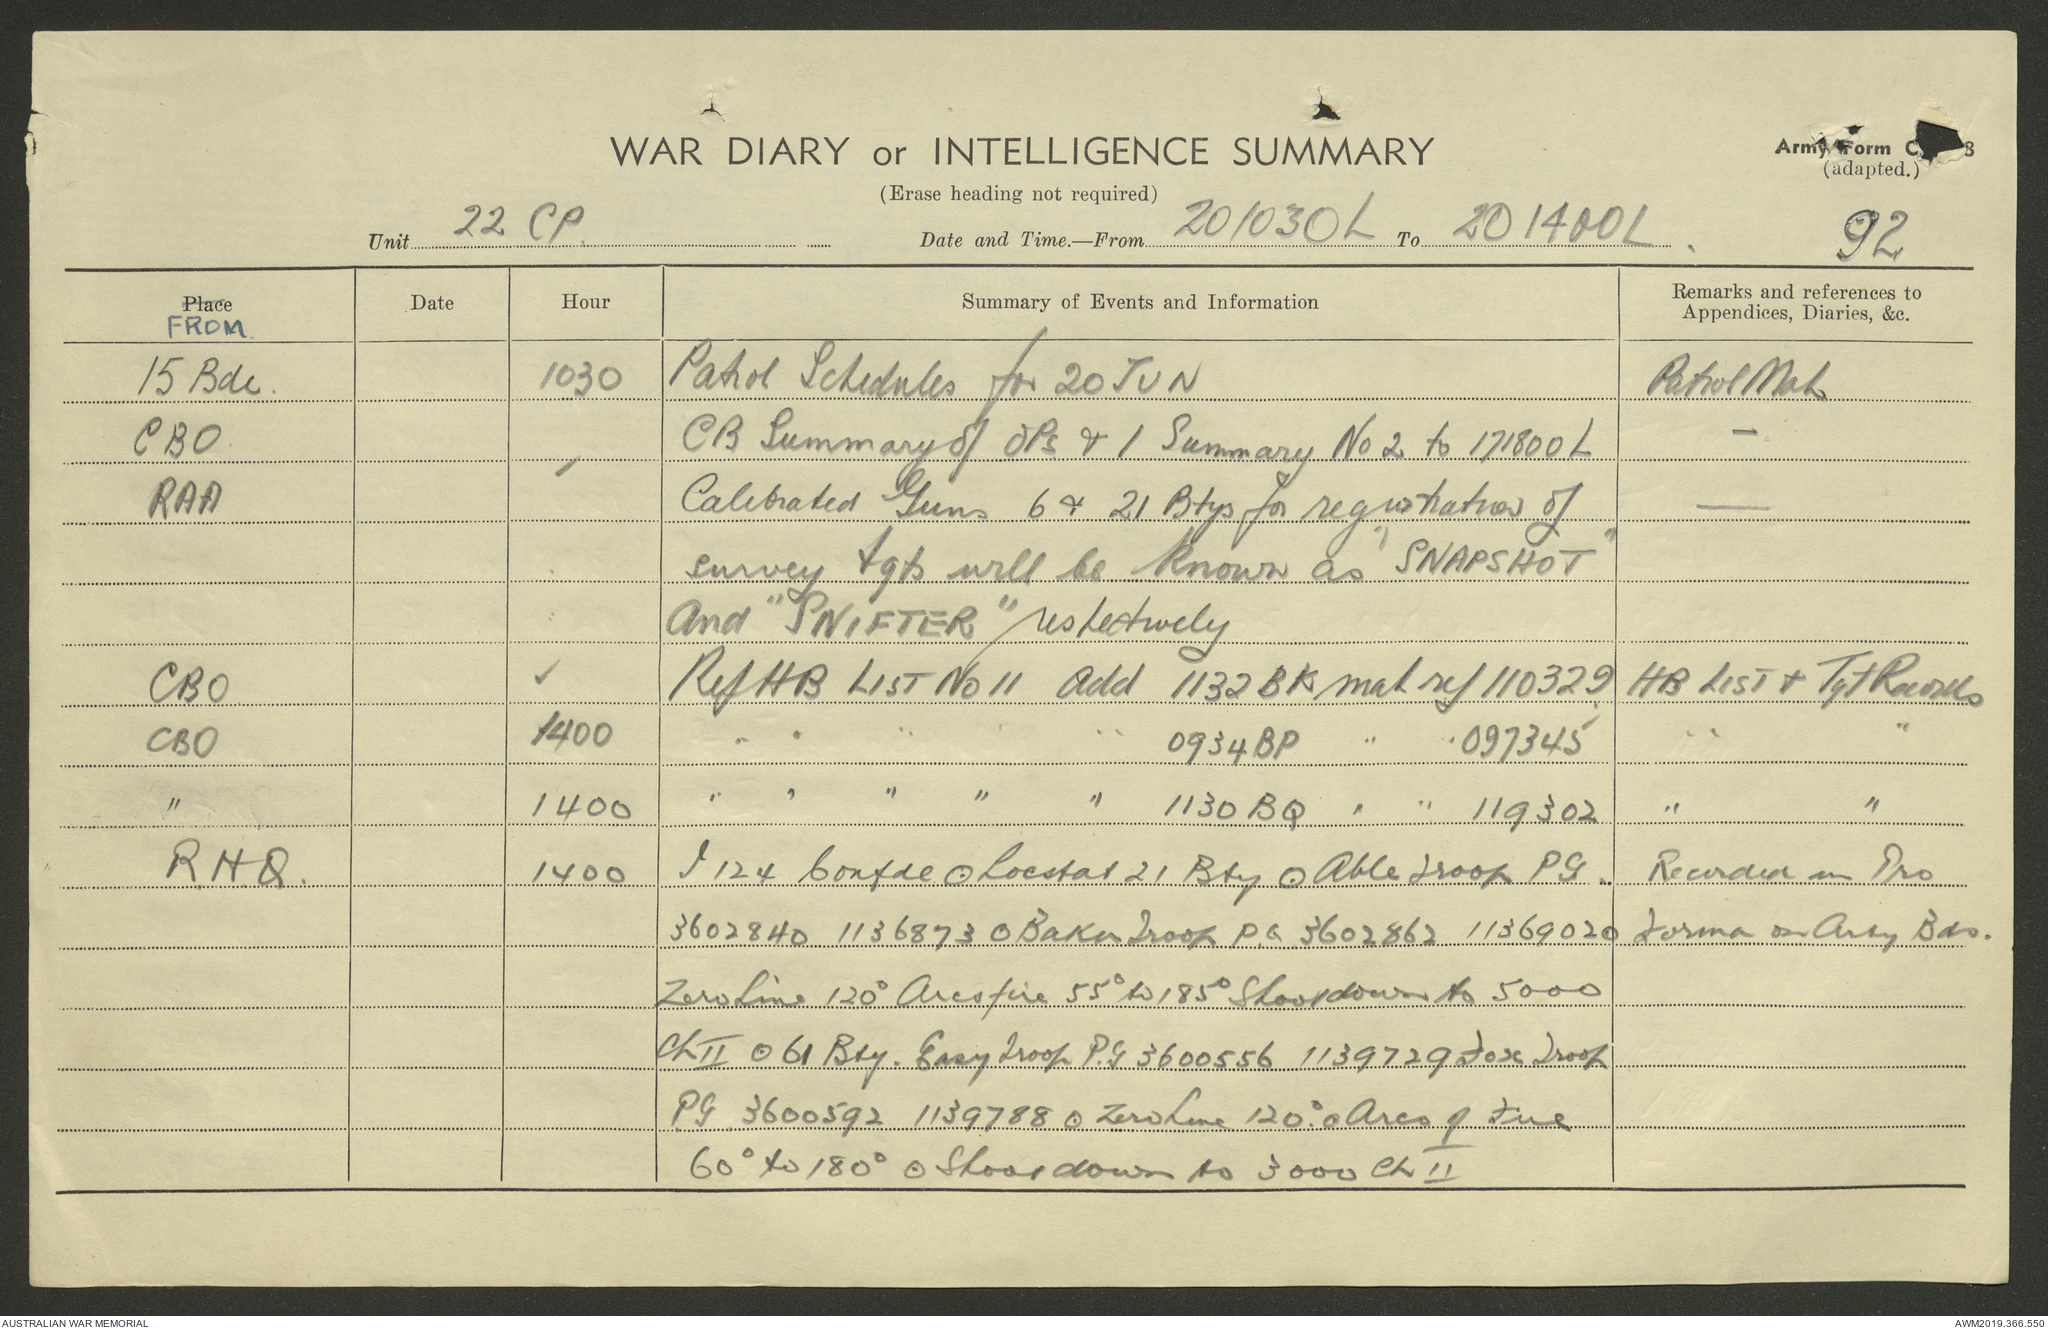 WAR DIARY or INTELLIGENCE SUMMARY
Army Form C. 8
(adapted.)
(Erase heading not required)
Unit 22 CP. Date and Time.—From 201030L To 201400L. 92
Place Date Hour Summary of Events and Information Remarks and references to
FROM Appendices, Diaries, &c.
15 Bde. 1030 Patrol Schedules for 20 JUN Patrol Map
CBO CB Summary of OPs & 1 Summary No 2 to 171800L —
RAA Calibrated Guns 6 & 21 Btys for registration of —
survey tgts will be known as "SNAPSHOT"
And "SNIFTER" respectively
CBO ✓ Ref HB LIST No 11 Add 1132 BK map ref 110329 HB LIST & Tgt Records
CBO 1400 " " " " 0934 BP " " 097345 " "
" 1400 " " " " " 1130 BQ " " 119302 " "
R.H.Q. 1400 I 124 Confde ⊙ Locstat 21 Bty ⊙ Able Troop P.G. Recorded in Pro
3602840 1136873 ⊙ Baker Troop P.G 3602862 11369020 Forma on Arty Bds.
Zero Line 120° Arcs fire 55° to 185° Shoot down to 5000
Ch II ⊙ 61 Bty. Easy Troop P.G 3600556 1139729 Fox Troop
P.G 3600592 1139788 ⊙ Zero Line 120° ⊙ Arcs of Fire
60° to 180° ⊙ Shoot down to 3000 Ch II
AUSTRALIAN WAR MEMORIAL AWM2019.366.550